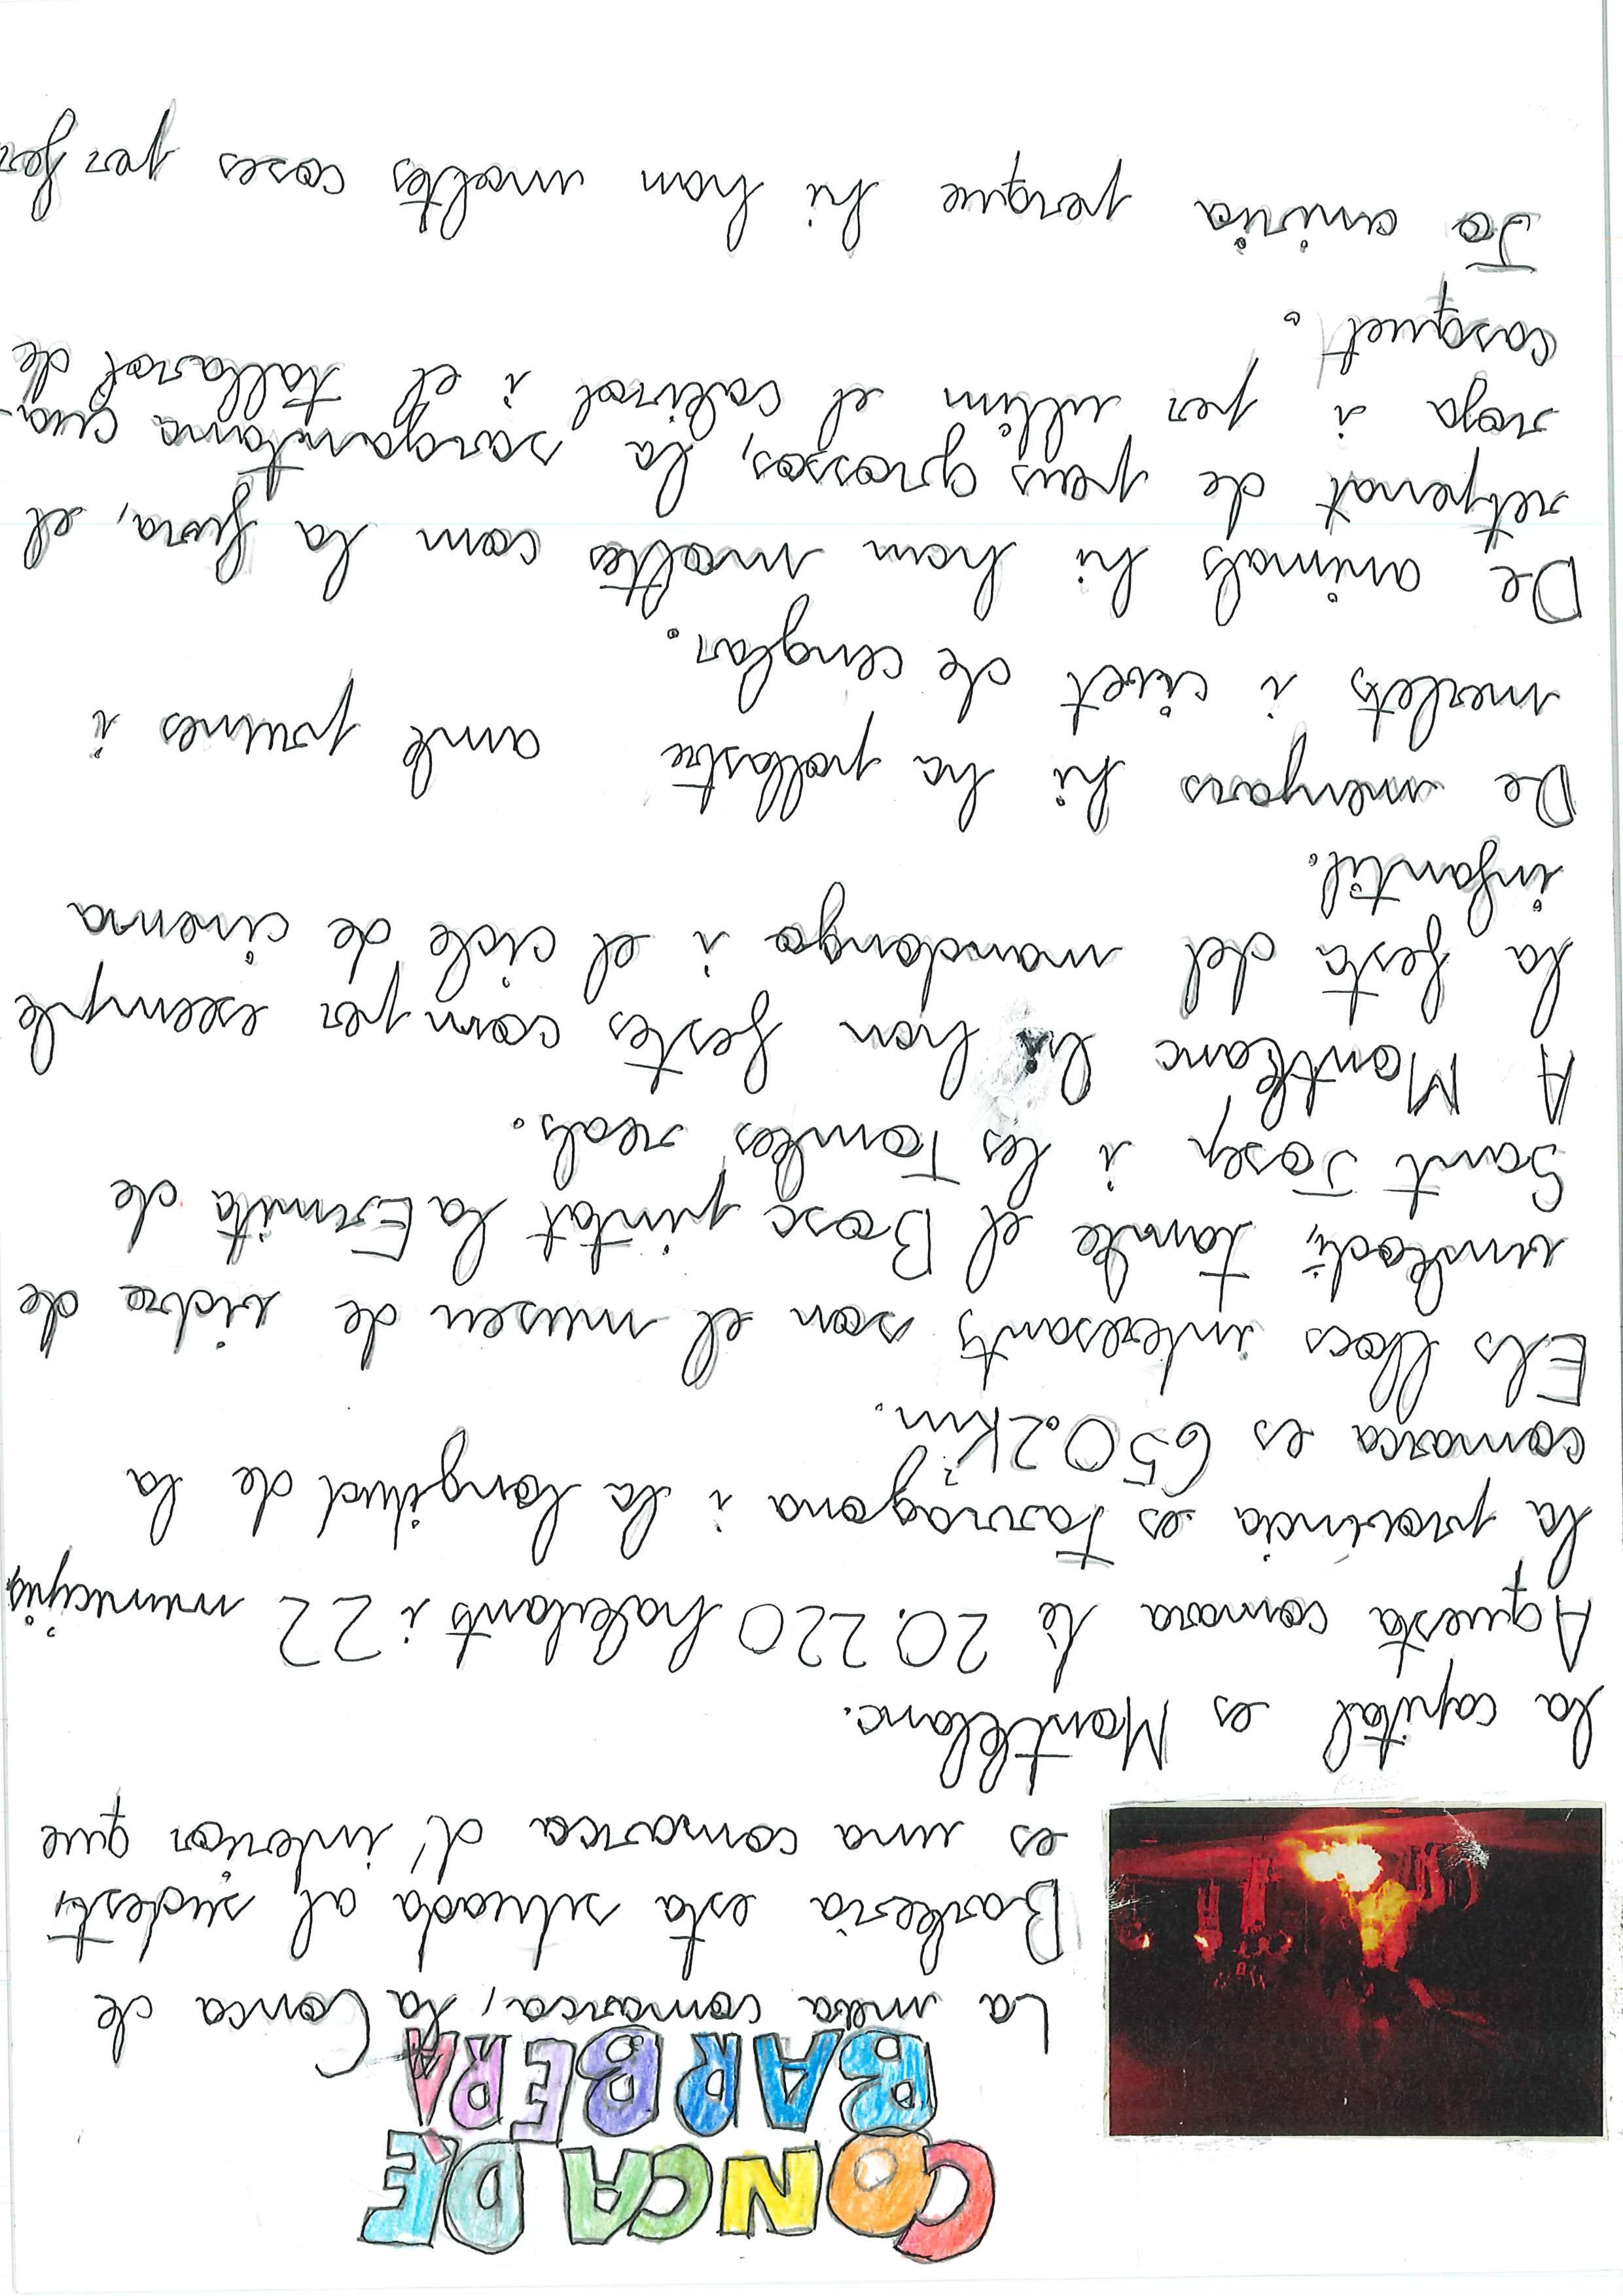 CONCA DE
BARBERÀ
La meva comarca, la Conca de
Barberia esta situada al sudest,
es una comarca d'interior que
la capital es Montblanc.
Aquesta comara té 20.220 habitants i 22 municipis,
la provincia es Tarragona i la longitud de la
comarca es 650.2 km².
Els llocs interesants son el museu de vidre de
vimbodí, també el Bosc pintat la Ermita de
Sant Josep i les Tombes reals.
A Montblanc hi han festes com per exemple
la festa del mandongo i el cicle de cinema
infantil.
De menjars hi ha pollastre amb prunes i
merlets i civet de cenglar.
De animals hi han moltes com la fura, el
retpenat de peus grossos, la sargantana cua-
roja i per ultim el cabirol i el tallarol de
casquet.
Jo aniria perque hi han moltes coses per fer